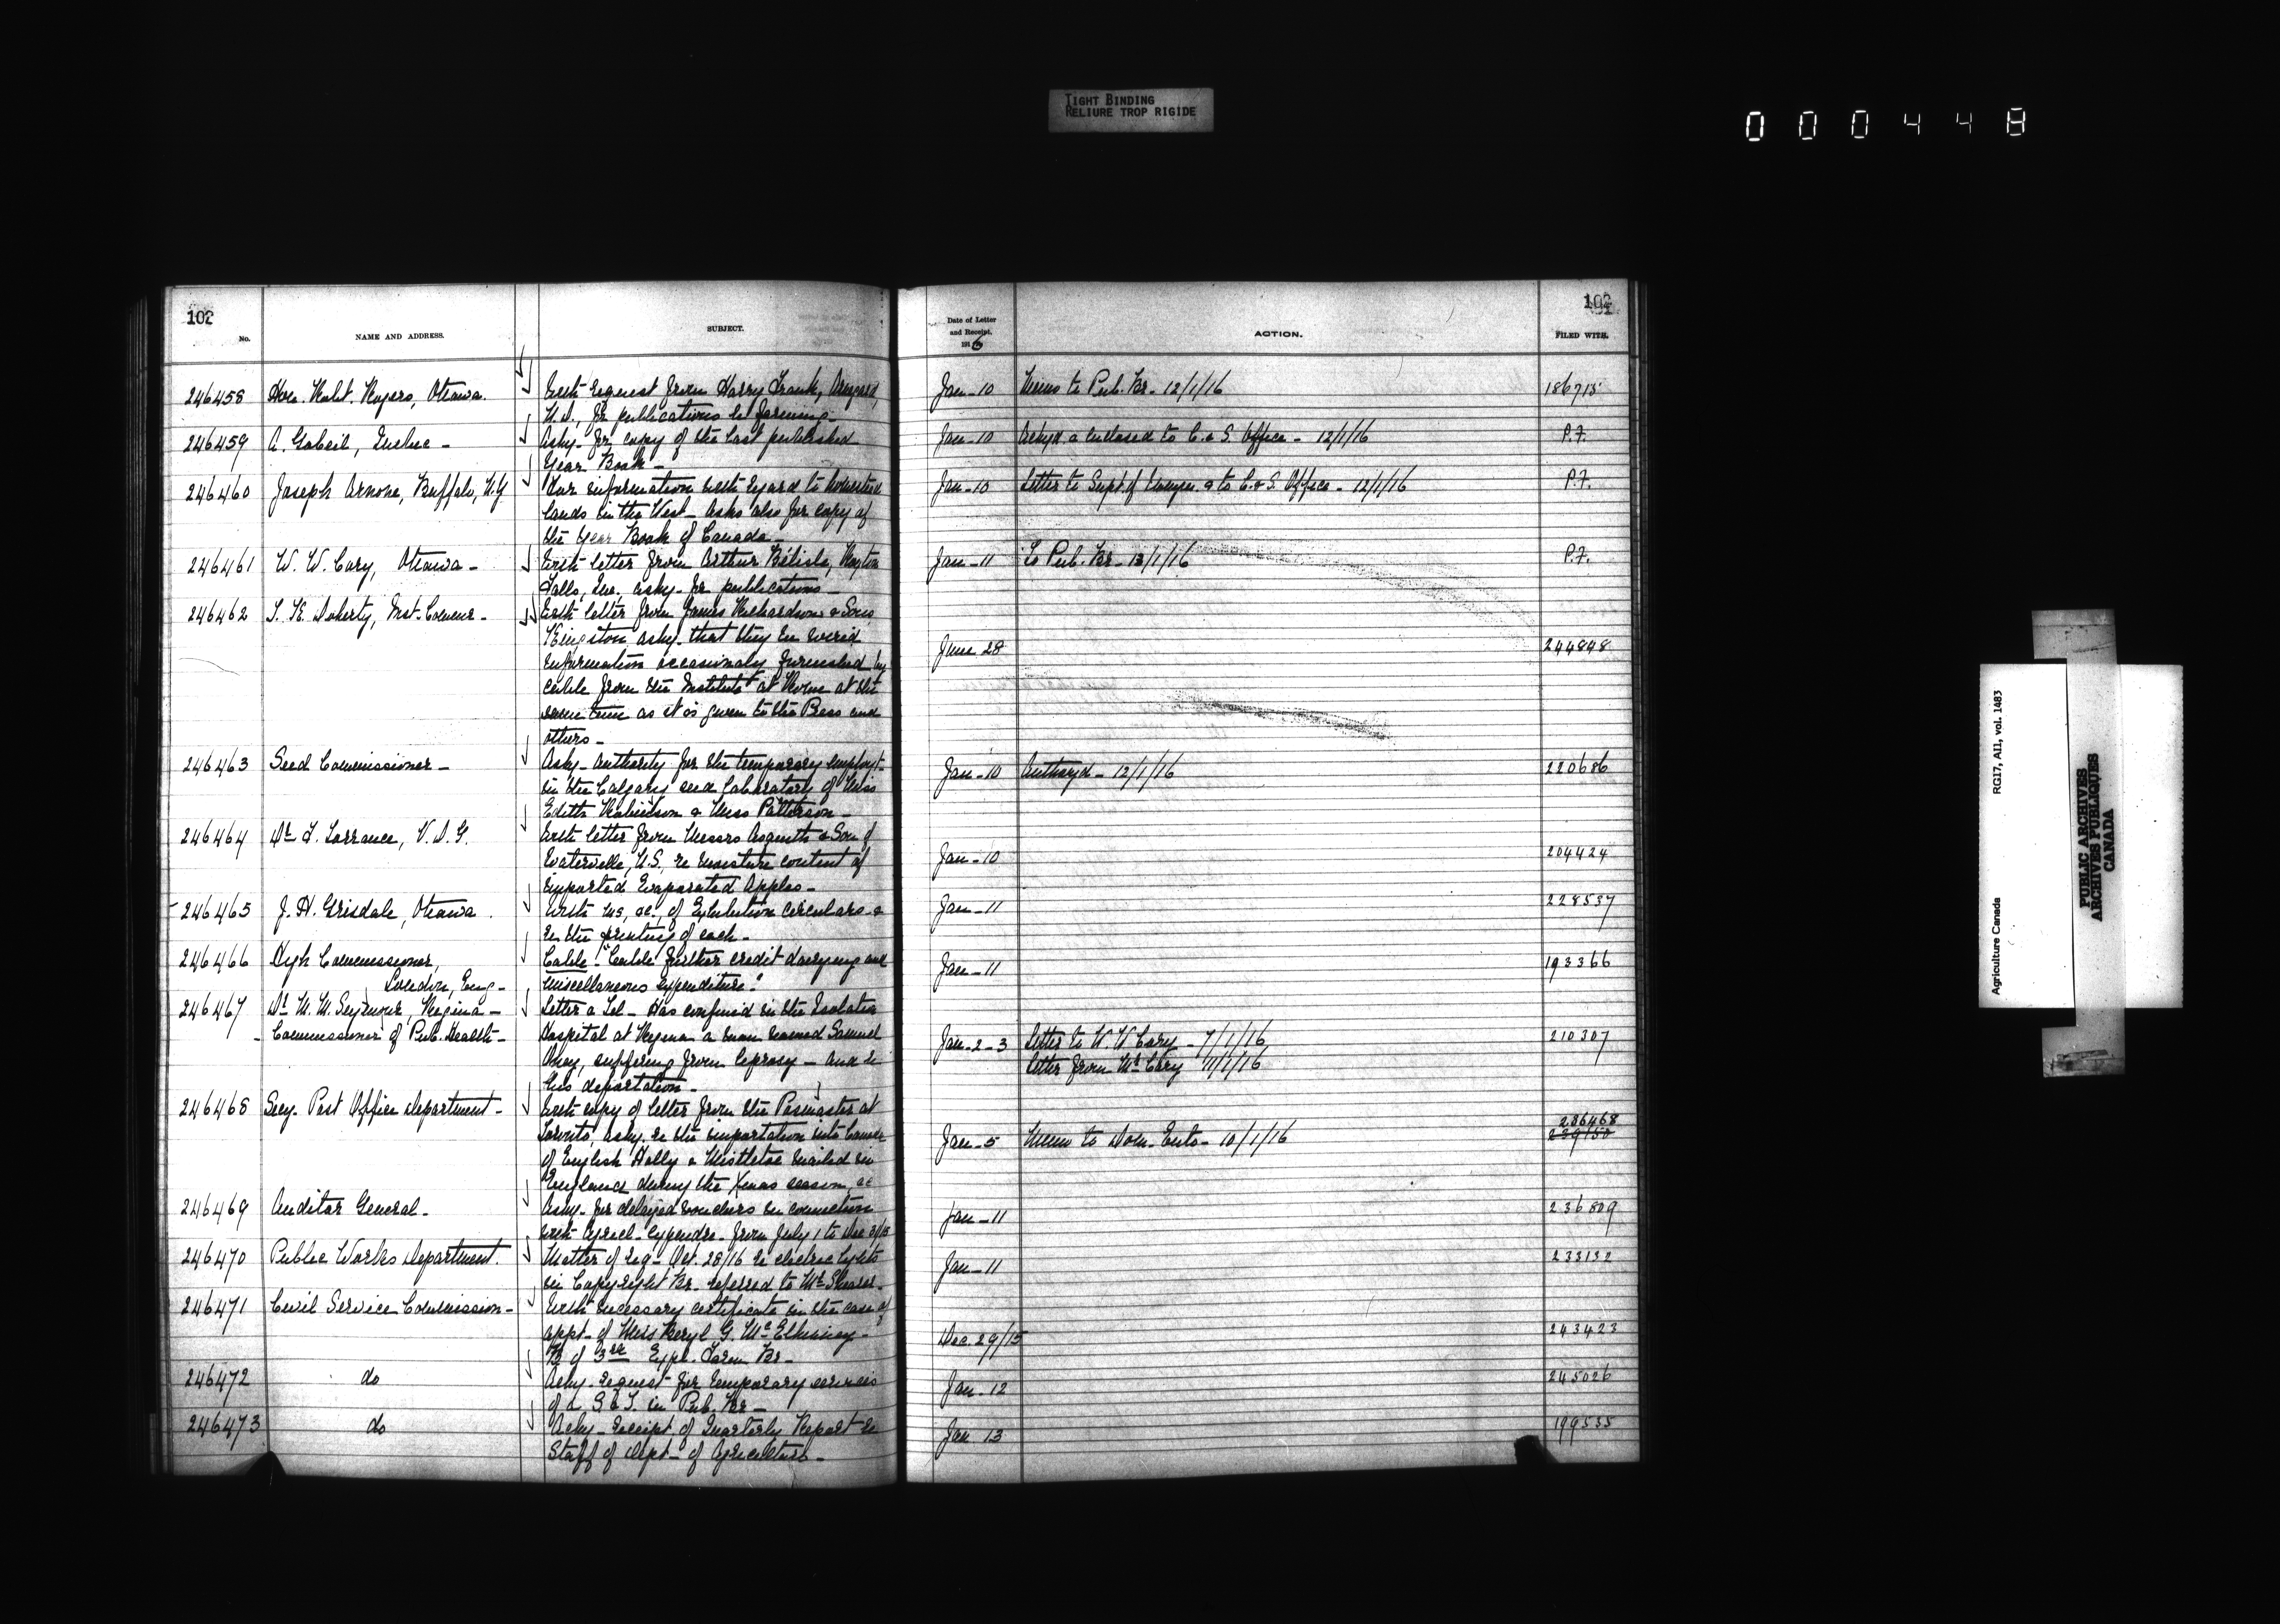 TIGHT BINDING
RELIURE TROP RIGIDE
000448
102
No.
NAME AND ADDRESS.
SUBJECT.
246458 Hon. Robt. Rogers, Ottawa. With request from Harry Frank,
N.D., for publications re farming-
246459 A. Gobeil, Quebec - Askg- for copy of the last published
Year Book-
246460 Joseph Arnone, Buffalo, N.Y. For information with regard to homestead
lands in the West- Asks also for copy of
the Year Book of Canada-
246461 W. W. Cory, Ottawa- With letter from Arthur Bélisle,
Falls, Que. askg- for publications-
246462 T. K. Doherty, Inst. Commr- With letter from James Richardson & Sons,
Kingston askg- that they be wired
information occasionaly furnished by
cable from the Institute at Rome at the
same time as it is given to the Press and
others-
246463 Seed Commissioner- Askg- authority for the temporary employt-
in the Calgary seed laboratory of Miss
Edith Robinson & Miss Patterson-
246464 Dr. F. Torrance, V.D.G. With letter from Messrs Asquith & Son of
Waterville, N.S., re moisture content of
imported Evaporated Apples-
246465 J. H. Grisdale, Ottawa. With ms, &c., of Exhibition circulars &
re the printing of each-
246466 High Commissioner, Cable- "Cable further credit dairying and
London, Eng- miscellaneous expenditure."
246467 Dr. M. M. Seymour, Regina- Letter & Tel- Has confined in the Isolation
Commissioner of Pub. Health- Hospital at Regina a man named Samuel
suffering from leprosy- and re
his deportation-
246468 Secy. Post Office Department- With copy of letter from the Posmaster at
Toronto, askg. re the importation into Canada
of English Holly & Mistletoe mailed in
England during the Xmas season, &c
246469 Auditor General- Askg- for delayed vouchers in connection
with Agricl- Expendre- from July 1 to Dec 31/15
246470 Public Works Department. Matter of req- Oct. 28/16 re electric lights
in Copyright Br. referred to Mr. Shearer-
246471 Civil Service Commission- With necessary certificate in the case of
appt- of Miss Beryl G. McElhinney-
B of 3rd Expl. Farm Br-
246472 do Askg- request for temporary services
of a S & T. in Pub. Br-
246473 do Ackg- receipt of Quarterly Report re
Staff of Dept- of Agriculture-
102
Date of Letter
and Receipt,
1916
ACTION.
FILED WITH.
Jan-10 Memo to Pub. Br- 12/1/16 186715
Jan-10 Ackgd. & enclosed to C. & S. Office- 12/1/16 P.F.
Jan-10 Letter to Supt. of Immgn. & to C. & S. Office- 12/1/16 P.F.
Jan-11 To Pub. Br- 13/1/16 P.F.
June 28 244848
Jan-10 Authzyd- 12/1/16 220686
Jan-10 204424
Jan-11 228537
Jan-11 193366
Jan-2-3 Letter to W. W. Cory- 7/1/16 210307
Letter from Mr. Cory 11/1/16
236468
Jan-5 Memo to Dom. Ento- 10/1/16 239150
Jan-11 236809
Jan-11 233132
Dec. 29/15 243423
Jan-12 245026
Jan 13 199535
Agriculture Canada
RG17, AII, vol. 1483
PUBLIC ARCHIVES
ARCHIVES PUBLIQUES
CANADA